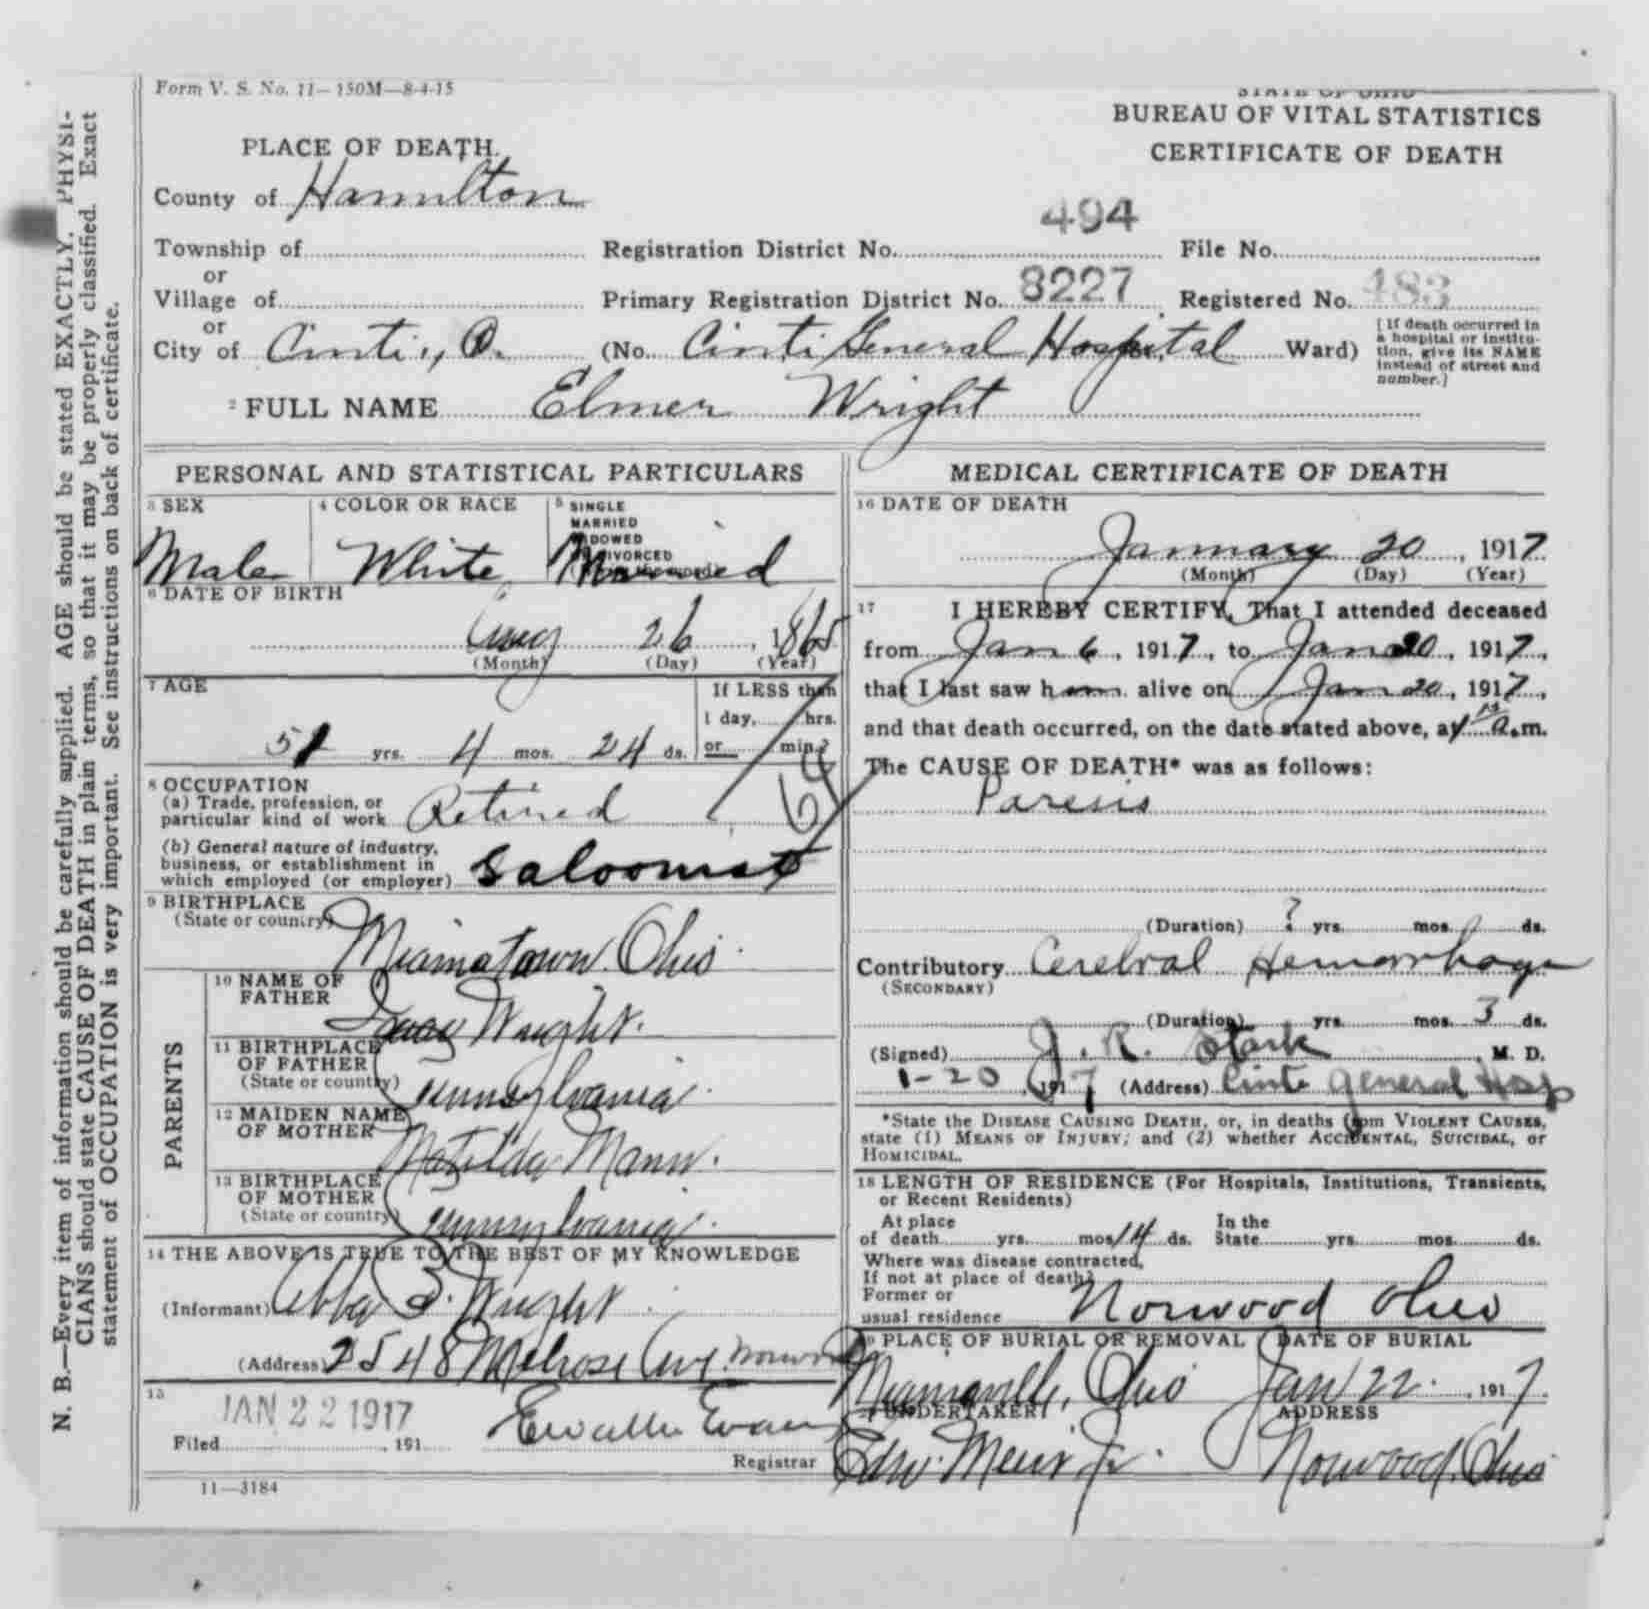 Form V. S. No. 11—150M—8-4-15
STATE OF OHIO
BUREAU OF VITAL STATISTICS
CERTIFICATE OF DEATH
PLACE OF DEATH.
County of Hamilton
494
Township of Registration District No. File No.
or
Village of Primary Registration District No. 8227 Registered No. 483
or
City of Cinti., O. (No. Cinti General Hospital Ward)
[If death occurred in
a hospital or institu-
tion, give its NAME
instead of street and
number.]
2 FULL NAME Elmer Wright
PERSONAL AND STATISTICAL PARTICULARS
3 SEX
Male
4 COLOR OR RACE
White
5 SINGLE
MARRIED
WIDOWED
DIVORCED
Married
6 DATE OF BIRTH
Aug 26, 1865
(Month) (Day) (Year)
7 AGE
51 yrs. 4 mos. 24 ds.
If LESS than
1 day, hrs.
or min.?
8 OCCUPATION
(a) Trade, profession, or
particular kind of work Retired
64
(b) General nature of industry,
business, or establishment in
which employed (or employer) Saloonist
9 BIRTHPLACE
(State or country)
Miamatown Ohio
PARENTS
10 NAME OF
FATHER
Wright.
11 BIRTHPLACE
OF FATHER
(State or country)
Pennsylvania.
12 MAIDEN NAME
OF MOTHER
Matilda Mann.
13 BIRTHPLACE
OF MOTHER
(State or country)
Pennsylvania.
14 THE ABOVE IS TRUE TO THE BEST OF MY KNOWLEDGE
(Informant) Abba B. Wright
(Address) 2548 Melrose Ave. Norwood
15
JAN 22 1917
Filed , 191 Evans
Registrar
11—3184
MEDICAL CERTIFICATE OF DEATH
16 DATE OF DEATH
January 20, 1917
(Month) (Day) (Year)
17 I HEREBY CERTIFY, That I attended deceased
from Jan 6, 1917, to Jan 20, 1917,
that I last saw him alive on Jan 20, 1917,
and that death occurred, on the date stated above, at a.m.
The CAUSE OF DEATH* was as follows:
Paresis
(Duration) ? yrs. mos. ds.
Contributory Cerebral Hemorrhage
(SECONDARY)
(Duration) yrs. mos. 3 ds.
(Signed) J. R. Stark, M. D.
1-20, 1917 (Address) Cinti General Hosp
*State the DISEASE CAUSING DEATH, or, in deaths from VIOLENT CAUSES,
state (1) MEANS OF INJURY; and (2) whether ACCIDENTAL, SUICIDAL, or
HOMICIDAL.
18 LENGTH OF RESIDENCE (For Hospitals, Institutions, Transients,
or Recent Residents)
At place
of death yrs. mos. 14 ds.
In the
State yrs. mos. ds.
Where was disease contracted,
If not at place of death?
Former or
usual residence Norwood Ohio
19 PLACE OF BURIAL OR REMOVAL
Miamiville, Ohio
DATE OF BURIAL
Jan 22, 1917.
20 UNDERTAKER
Edw. Meier Jr.
ADDRESS
Norwood, Ohio
N. B.—Every item of information should be carefully supplied. AGE should be stated EXACTLY. PHYSI-
CIANS should state CAUSE OF DEATH in plain terms, so that it may be properly classified. Exact
statement of OCCUPATION is very important. See instructions on back of certificate.